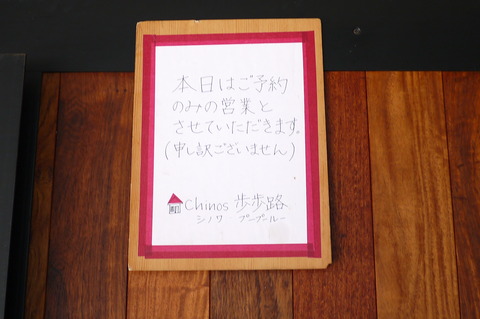 本日はご予約
のみの営業と
させていただきます。
(申し訳ございません)
Chinos 歩歩路
シノワ プープールー